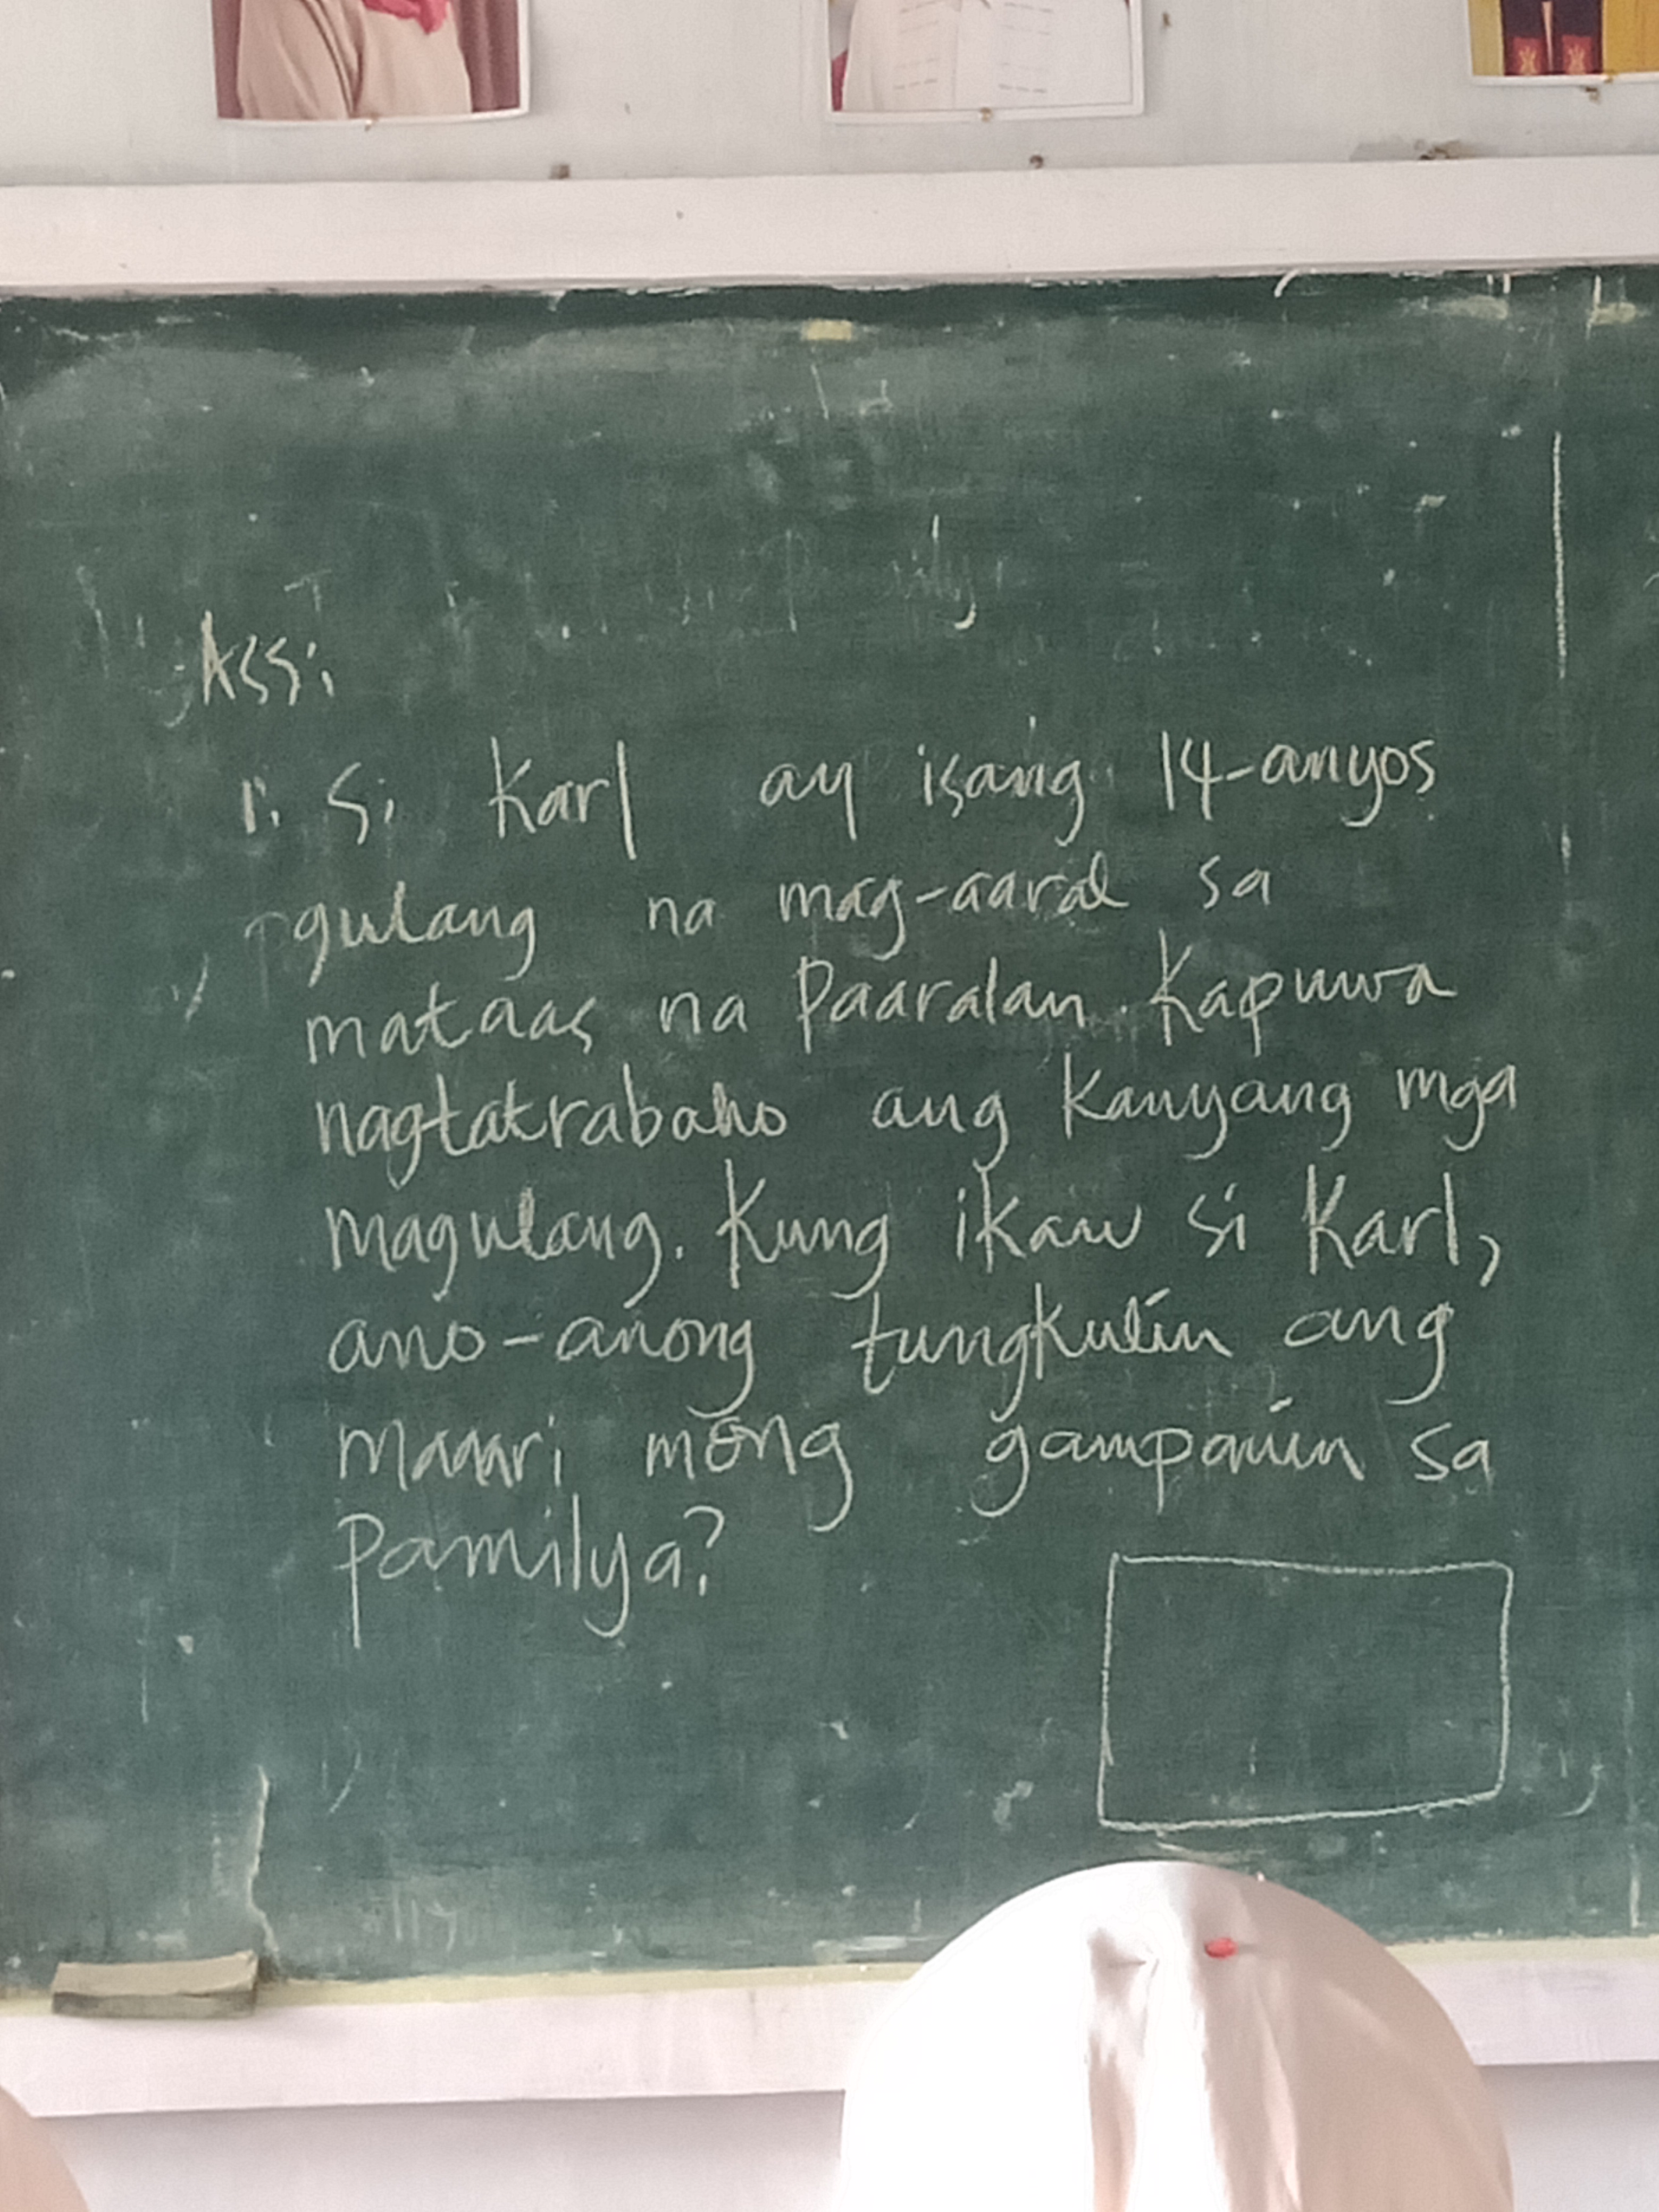 Ass:
1. Si Karl ay isang 14-anyos
gulang na mag-aaral sa
mataas na Paaralan. Kapuwa
nagtatrabaho ang kanyang mga
magulang. Kung ikaw si Karl,
ano-anong tungkulin ang
maaari mong gampanin sa
pamilya?